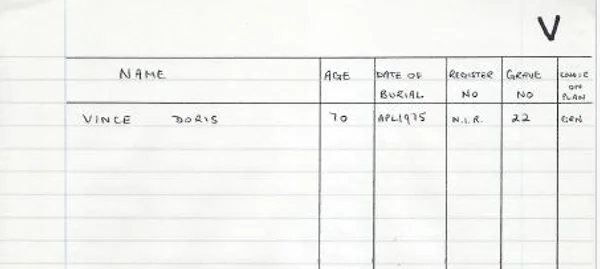 V
NAME AGE DATE OF BURIAL REGISTER NO GRAVE NO ON PLAN
VINCE DORIS 70 APL1975 N.I.R. 22 GRN